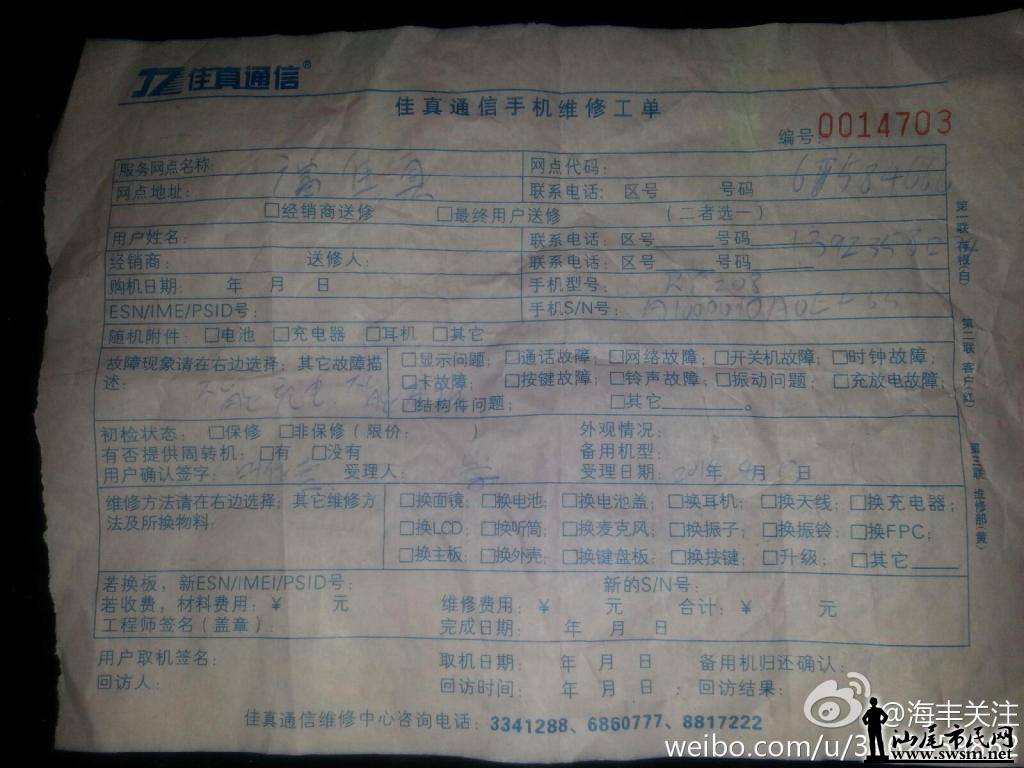 JZ 佳真通信®
佳真通信手机维修工单
编号:0014703
服务网点名称: 网点代码:
网点地址: 联系电话: 区号 号码
□经销商送修 □最终用户送修 (二者选一)
用户姓名: 联系电话: 区号 号码
经销商: 送修人: 联系电话: 区号 号码
购机日期: 年 月 日 手机型号:
ESN/IME/PSID号: 手机S/N号:
随机附件: □电池 □充电器 □耳机 □其它
故障现象请在右边选择; 其它故障描述:
□显示问题; □通话故障; □网络故障; □开关机故障; □时钟故障;
□卡故障; □按键故障; □铃声故障; □振动问题; □充放电故障;
□结构件问题; □其它 。
初检状态: □保修 □非保修(限价: ) 外观情况:
有否提供周转机: □有 □没有 备用机型:
用户确认签字: 受理人: 受理日期: 年 4月 日
维修方法请在右边选择; 其它维修方法及所换物料:
□换面镜; □换电池; □换电池盖; □换耳机; □换天线; □换充电器;
□换LCD; □换听筒; □换麦克风; □换振子; □换振铃; □换FPC;
□换主板; □换外壳; □换键盘板; □换按键; □升级; □其它
若换板, 新ESN/IMEI/PSID号: 新的S/N号:
若收费, 材料费用: ¥ 元 维修费用: ¥ 元 合计: ¥ 元
工程师签名(盖章): 完成日期: 年 月 日
用户取机签名: 取机日期: 年 月 日 备用机归还确认:
回访人: 回访时间: 年 月 日 ; 回访结果:
佳真通信维修中心咨询电话: 3341288、6860777、8817222
第一联 存根(白)
第二联 客户(红)
第三联 维修部(黄)
@海丰关注
weibo.com/u/3
汕尾市民网
www.swsm.net